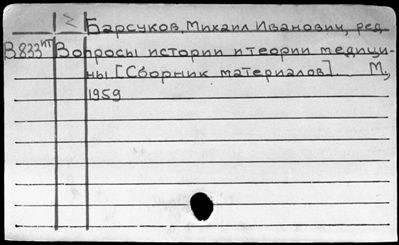 Σ Барсуков, Михаил Иванович, ред.
В833ИТ Вопросы истории и теории медици-
ны [Сборник материалов]. М.,
1959